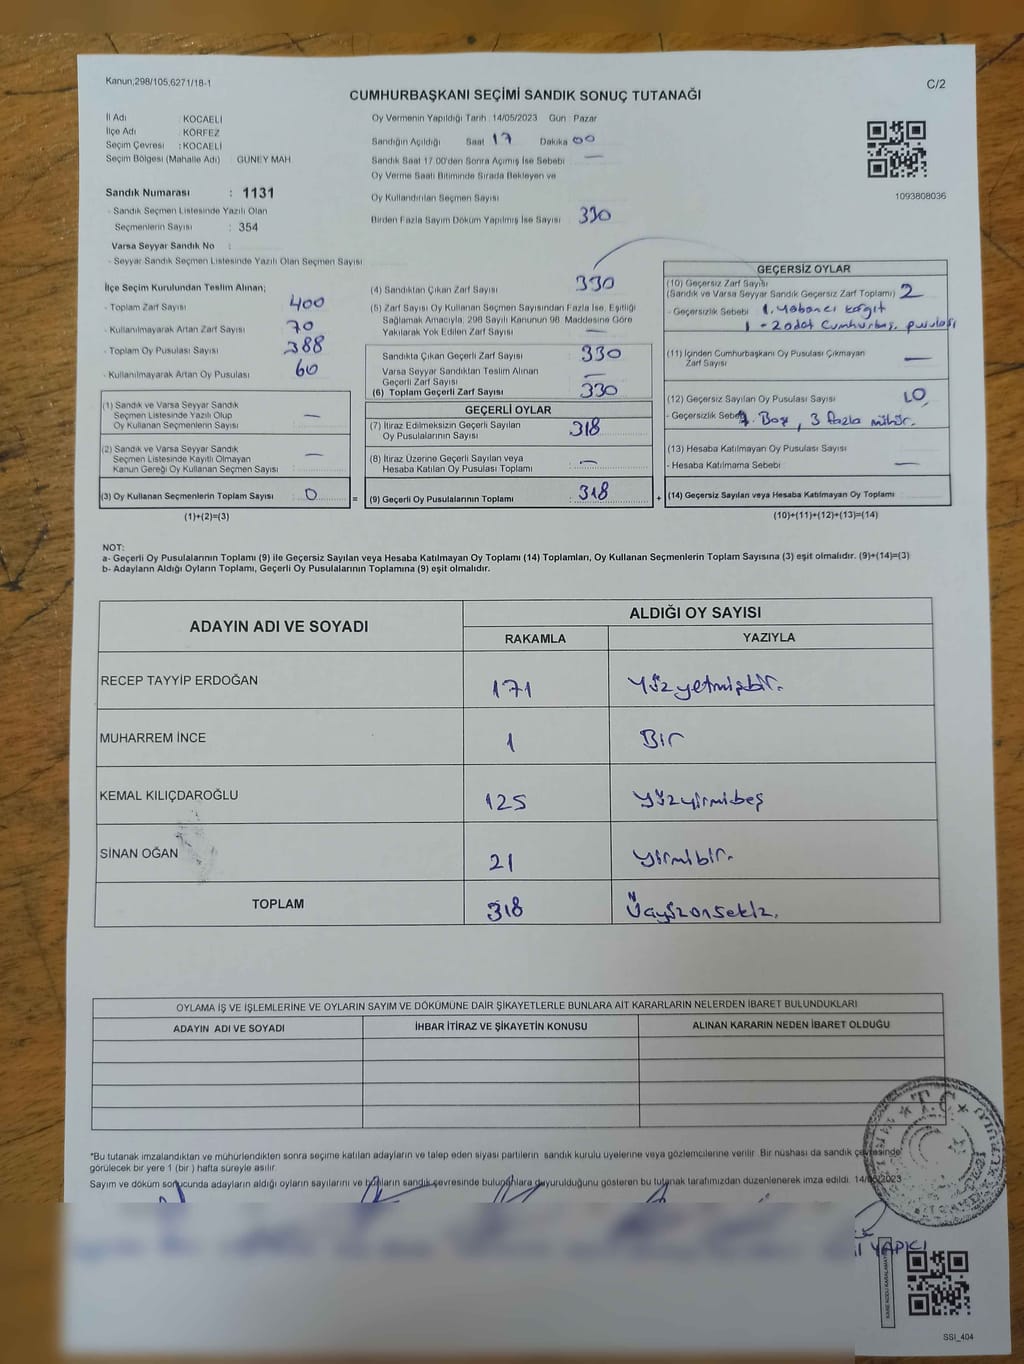 Kanun;298/105,6271/18-1
C/2
CUMHURBAŞKANI SEÇİMİ SANDIK SONUÇ TUTANAĞI
İl Adı : KOCAELİ
İlçe Adı : KÖRFEZ
Seçim Çevresi : KOCAELİ
Seçim Bölgesi (Mahalle Adı) : GÜNEY MAH
Sandık Numarası : 1131
- Sandık Seçmen Listesinde Yazılı Olan
Seçmenlerin Sayısı : 354
Varsa Seyyar Sandık No :
- Seyyar Sandık Seçmen Listesinde Yazılı Olan Seçmen Sayısı
Oy Vermenin Yapıldığı Tarih :14/05/2023 Gün : Pazar
Sandığın Açıldığı Saat 17 Dakika 00
Sandık Saat 17.00'den Sonra Açımış İse Sebebi —
Oy Verme Saati Bitiminde Sırada Bekleyen ve
Oy Kullandırılan Seçmen Sayısı
Birden Fazla Sayım Döküm Yapılmış İse Sayısı 330
1093808036
İlçe Seçim Kurulundan Teslim Alınan;
- Toplam Zarf Sayısı 400
- Kullanılmayarak Artan Zarf Sayısı 70
- Toplam Oy Pusulası Sayısı 388
- Kullanılmayarak Artan Oy Pusulası 60
(1) Sandık ve Varsa Seyyar Sandık
Seçmen Listesinde Yazılı Olup
Oy Kullanan Seçmenlerin Sayısı : —
(2) Sandık ve Varsa Seyyar Sandık
Seçmen Listesinde Kayıtlı Olmayan
Kanun Gereği Oy Kullanan Seçmen Sayısı : —
(3) Oy Kullanan Seçmenlerin Toplam Sayısı : 0
(1)+(2)=(3)
=
(4) Sandıktan Çıkan Zarf Sayısı 330
(5) Zarf Sayısı Oy Kullanan Seçmen Sayısından Fazla İse, Eşitliği
Sağlamak Amacıyla, 298 Sayılı Kanunun 98. Maddesine Göre
Yakılarak Yok Edilen Zarf Sayısı —
Sandıkta Çıkan Geçerli Zarf Sayısı 330
Varsa Seyyar Sandıktan Teslim Alınan
Geçerli Zarf Sayısı —
(6) Toplam Geçerli Zarf Sayısı 330
GEÇERLİ OYLAR
(7) İtiraz Edilmeksizin Geçerli Sayılan
Oy Pusulalarının Sayısı : 318
(8) İtiraz Üzerine Geçerli Sayılan veya
Hesaba Katılan Oy Pusulası Toplamı : —
(9) Geçerli Oy Pusulalarının Toplamı : 318
+
GEÇERSİZ OYLAR
(10) Geçersiz Zarf Sayısı
(Sandık ve Varsa Seyyar Sandık Geçersiz Zarf Toplamı) 2
- Geçersizlik Sebebi 1. Yabancı kağıt
1 - 2 adet Cumhurbaş. pusulası
(11) İçinden Cumhurbaşkanı Oy Pusulası Çıkmayan
Zarf Sayısı —
(12) Geçersiz Sayılan Oy Pusulası Sayısı 10
- Geçersizlik Sebebi 7. Boş, 3 fazla mühür.
(13) Hesaba Katılmayan Oy Pusulası Sayısı
- Hesaba Katılmama Sebebi —
(14) Geçersiz Sayılan veya Hesaba Katılmayan Oy Toplamı
(10)+(11)+(12)+(13)=(14)
NOT:
a- Geçerli Oy Pusulalarının Toplamı (9) ile Geçersiz Sayılan veya Hesaba Katılmayan Oy Toplamı (14) Toplamları, Oy Kullanan Seçmenlerin Toplam Sayısına (3) eşit olmalıdır. (9)+(14)=(3)
b- Adayların Aldığı Oyların Toplamı, Geçerli Oy Pusulalarının Toplamına (9) eşit olmalıdır.
ADAYIN ADI VE SOYADI
ALDIĞI OY SAYISI
RAKAMLA YAZIYLA
RECEP TAYYİP ERDOĞAN 171 Yüzyetmişbir.
MUHARREM İNCE 1 Bir
KEMAL KILIÇDAROĞLU 125 Yüzyirmibeş
SİNAN OĞAN 21 Yirmibir.
TOPLAM 318 Üçyüzonsekiz.
OYLAMA İŞ VE İŞLEMLERİNE VE OYLARIN SAYIM VE DÖKÜMÜNE DAİR ŞİKAYETLERLE BUNLARA AİT KARARLARIN NELERDEN İBARET BULUNDUKLARI
ADAYIN ADI VE SOYADI İHBAR İTİRAZ VE ŞİKAYETİN KONUSU ALINAN KARARIN NEDEN İBARET OLDUĞU
*Bu tutanak imzalandıktan ve mühürlendikten sonra seçime katılan adayların ve talep eden siyasi partilerin sandık kurulu üyelerine veya gözlemcilerine verilir. Bir nüshası da sandık çevresinde
görülecek bir yere 1 (bir ) hafta süreyle asılır.
Sayım ve döküm sonucunda adayların aldığı oyların sayılarını ve bunların sandık çevresinde bulunanlara duyurulduğunu gösteren bu tutanak tarafımızdan düzenlenerek imza edildi. 14/05/2023
T.C.
YAPICI
SSİ_404